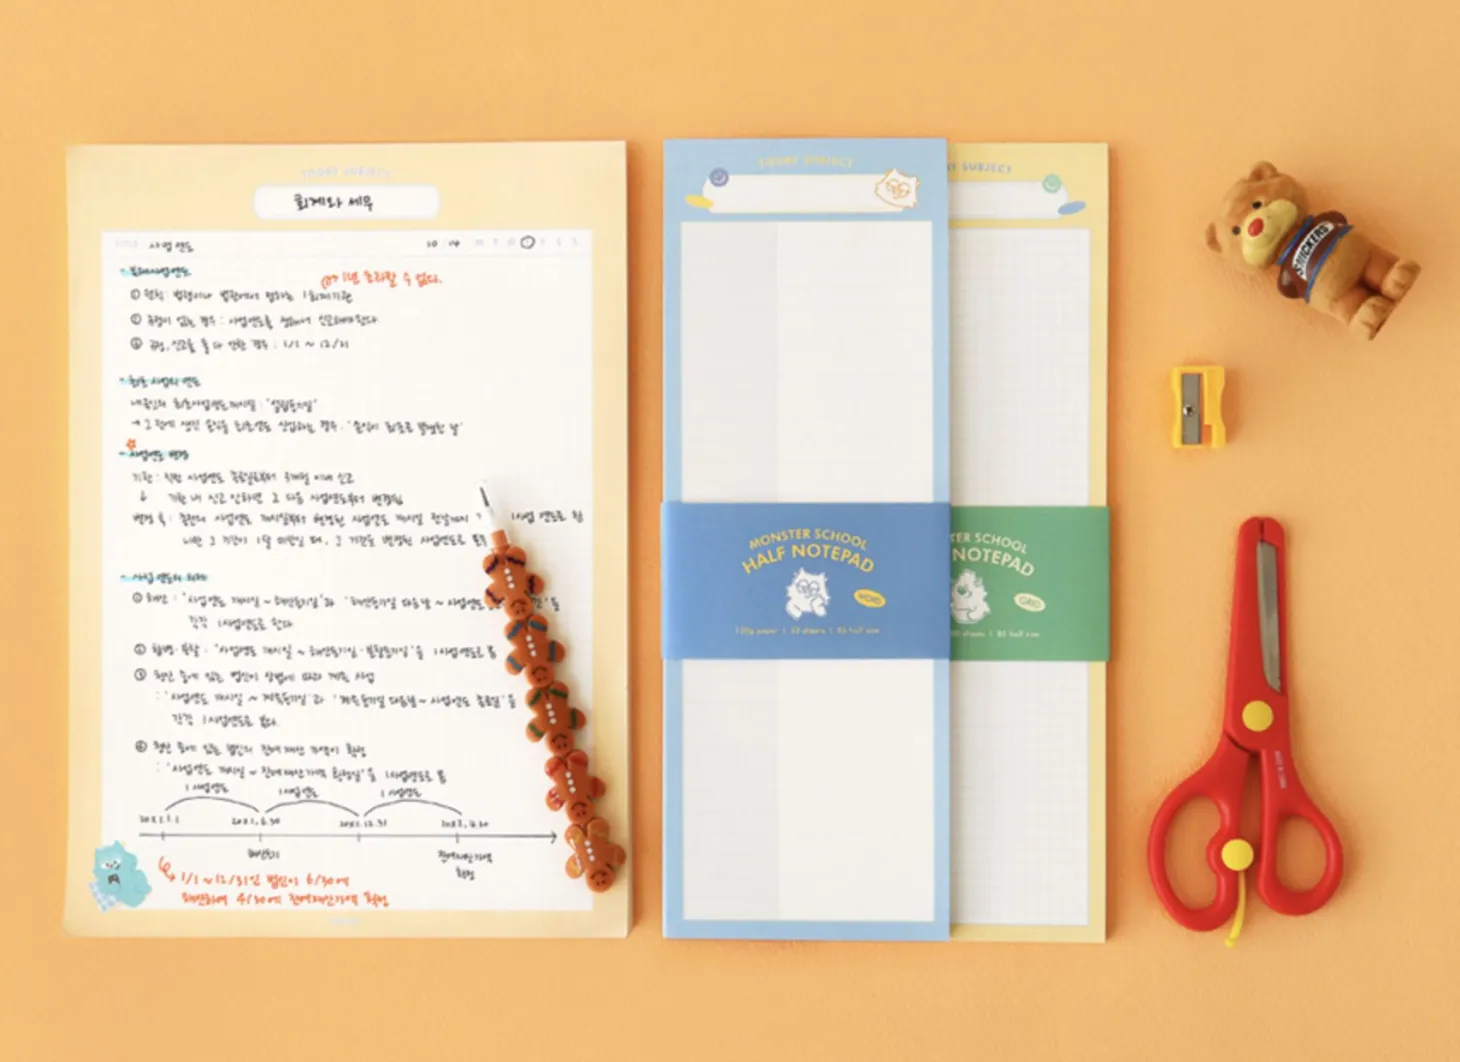 TODAY SUBJECT
회계와 세무
사업연도
10 14 M T W T F S S
본래사업연도
1년 초과할 수 없다.
① 원칙: 법령이나 법인에서 정하는 1회계기간
② 규정이 없는 경우: 사업연도를 정해서 신고해야한다.
③ 규정, 신고 둘 다 안한 경우: 1/1 ~ 12/31
최초 사업의 연도
내국인의 최초사업연도개시일: "설립등기일"
→ 그 전에 생긴 손익을 최초연도 산입하는 경우: "손익이 최초로 발생한 날"
사업연도 변경
기한: 직전 사업연도 종료일로부터 3개월 이내 신고
↓ 기한 내 신고 안하면 그 다음 사업연도부터 변경됨
변경 후: 종전의 사업연도 개시일부터 변경된 사업연도 개시일 전날까지 1사업연도로 함
다만 그 기간이 1달 미만일 때, 그 기간도 변경된 사업연도로
사업연도의 의제
① 해산: "사업연도 개시일 ~ 해산등기일"과 "해산등기일 다음날 ~ 사업연도
각각 1사업연도로 한다
② 합병·분할: "사업연도 개시일 ~ 합병등기일·분할등기일"을 1사업연도로 봄
③ 청산 중에 있는 법인이 상법에 따라 계속 사업
: "사업연도 개시일 ~ 계속등기일"과 "계속등기일 다음날 ~ 사업연도 종료일"을
각각 1사업연도로 본다.
④ 청산 중에 있는 법인의 잔여재산 가액이 확정
: "사업연도 개시일 ~ 잔여재산가액 확정일"을 1사업연도로 봄
1사업연도 1사업연도 1사업연도
20X1.1.1 20X1.6.30 20X1.12.31 20X2.4.30
해산등기 잔여재산가액
확정
1/1 ~ 12/31인 법인이 6/30에
해산하여 4/30에 잔여재산가액 확정
TODAY SUBJECT
MONSTER SCHOOL
HALF NOTEPAD
WORD
120g paper | 50 sheets | B5 half size
AY SUBJECT
TER SCHOOL
NOTEPAD
GRID
sheets | B5 half size
SNICKERS